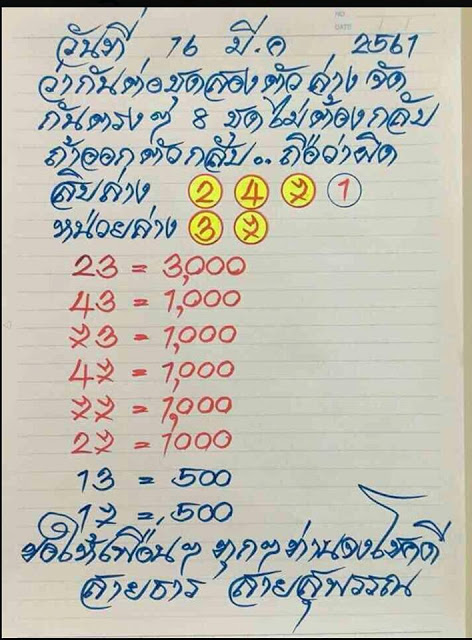 วันที่ 16 มี.ค 2561
ว่ากันต่อชุดสองตัวล่าง จัด
กันตรงๆ 8 ชุดไม่ต้องกลับ
ถ้าออกตัวกลับ.. ถือว่าผิด
สิบล่าง 2 4 7 1
หน่วยล่าง 3 7
23 = 3,000
43 = 1,000
73 = 1,000
47 = 1,000
77 = 1,000
27 = 1000
13 = 500
17 = 500
ขอให้เพื่อนๆ ทุกๆท่านจงโชคดี
สายธาร สายสุพรรณ